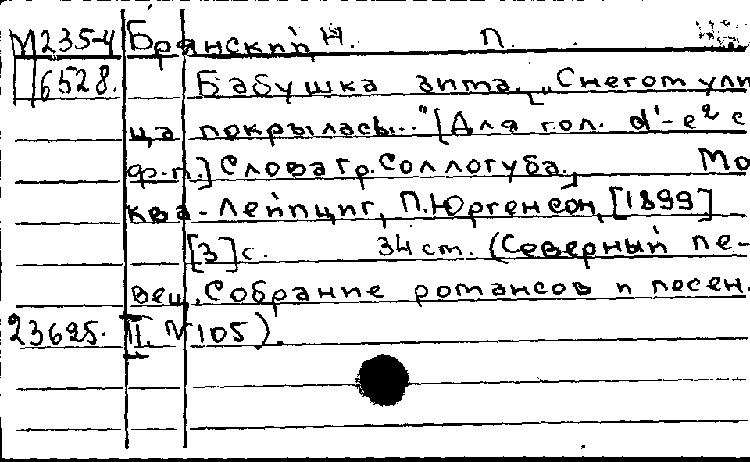 М235-4 Брянский, Н. П.
6528. Бабушка зима. „Снегом ули
ца покрылась..." [Для гол. d'-e² с
ф-п.] Слова гр. Соллогуба. Мо
ква-Лейпциг, П. Юргенсон, [1899]
[3] с. 34 см. (Северный пе-
вец. Собрание романсов и песен.
23625. II. № 105).